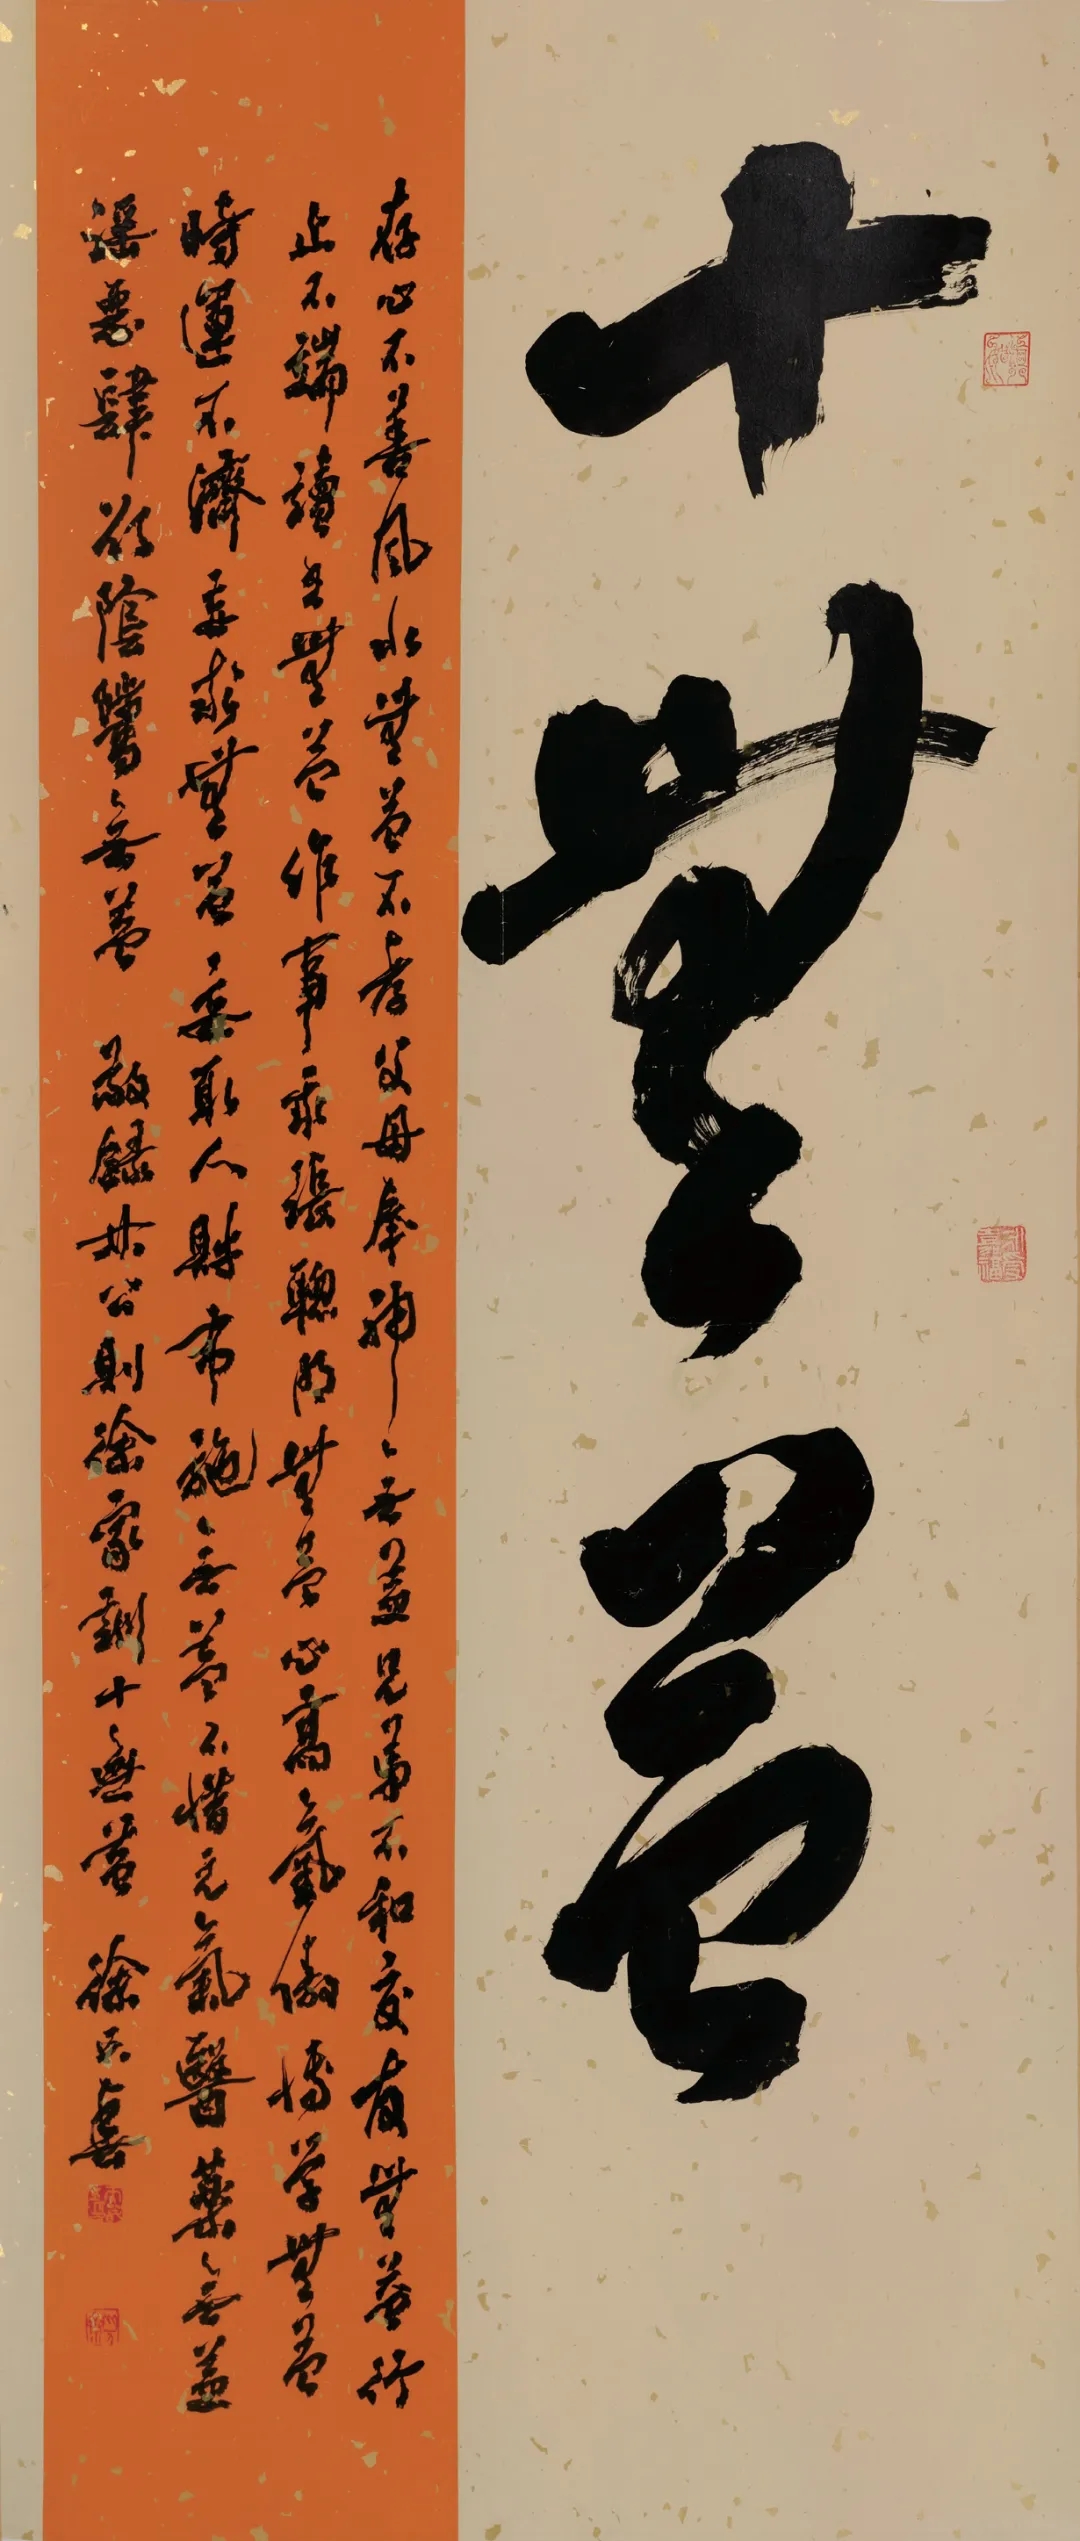 十無益
存心不善風水無益不孝父母奉神無益兄弟不和交友無益行
止不端讀書無益作事乖張聰明無益心高氣傲博学無益
時運不濟妄求無益妄取人財布施無益不惜元氣醫藥無益
淫惡肆欲陰騭無益 敬録林公則徐家訓十無益 徐